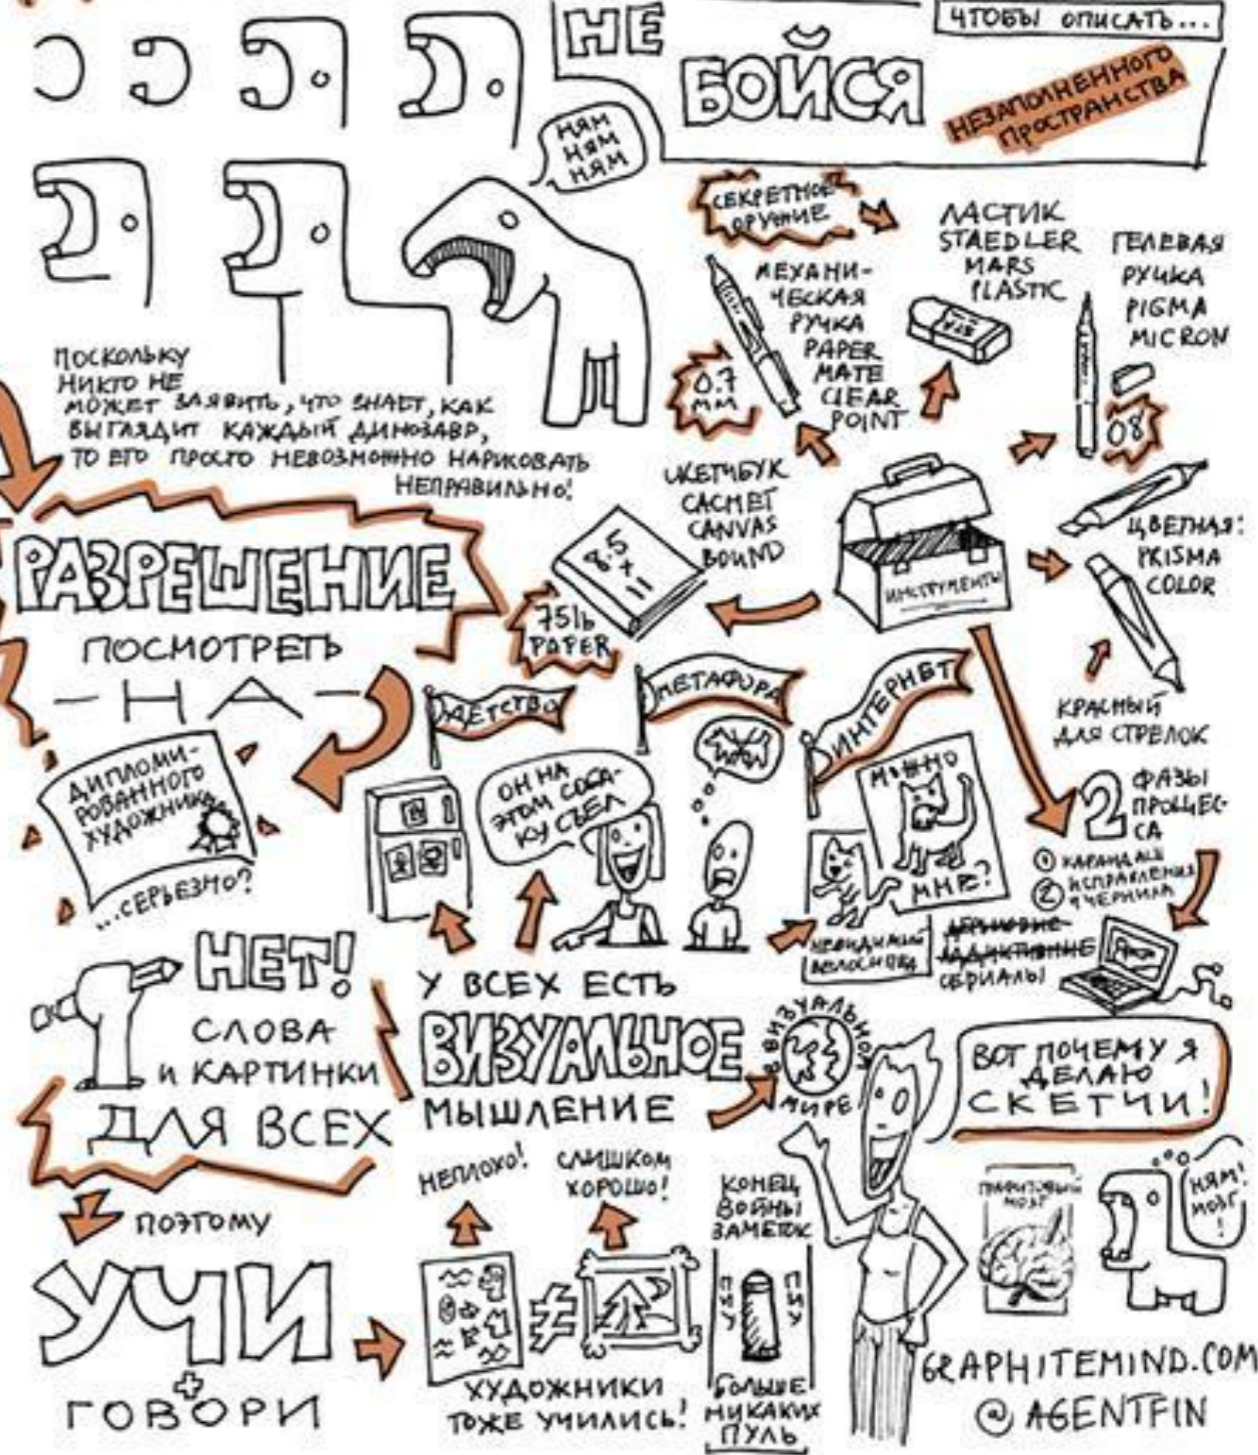 НЕ
БОЙСЯ
ЧТОБЫ ОПИСАТЬ...
НЕЗАПОЛНЕННОГО
ПРОСТРАНСТВА
НЯМ
НЯМ
НЯМ
СЕКРЕТНОЕ
ОРУЖИЕ
ЛАСТИК
STAEDLER
MARS
PLASTIC
ГЕЛЕВАЯ
РУЧКА
PIGMA
MICRON
08
МЕХАНИ-
ЧЕСКАЯ
РУЧКА
PAPER
MATE
CLEAR
POINT
0.7
ММ
ПОСКОЛЬКУ
НИКТО НЕ
МОЖЕТ ЗАЯВИТЬ, ЧТО ЗНАЕТ, КАК
ВЫГЛЯДИТ КАЖДЫЙ ДИНОЗАВР,
ТО ЕГО ПРОСТО НЕВОЗМОЖНО НАРИСОВАТЬ
НЕПРАВИЛЬНО!
СКЕТЧБУК
CACHET
CANVAS
BOUND
8.5
x
11
75lb
PAPER
ИНСТРУМЕНТЫ
ЦВЕТНАЯ:
PRISMA
COLOR
КРАСНЫЙ
ДЛЯ СТРЕЛОК
РАЗРЕШЕНИЕ
ПОСМОТРЕТЬ
НА
ДИПЛОМИ-
РОВАННОГО
ХУДОЖНИКА
...СЕРЬЕЗНО?
НЕТ!
СЛОВА
И КАРТИНКИ
ДЛЯ ВСЕХ
ДЕТСТВО
МЕТАФОРА
ИНТЕРНЕТ
ОН НА
ЭТОМ СОБА-
КУ СЪЕЛ
МОЖНО
МНЕ?
НЕВИДИМЫЙ
ВЕЛОСИПЕД
2
ФАЗЫ
ПРОЦЕС-
СА
1 КАРАНДАШ
ИСПРАВЛЕНИЯ
2 ЧЕРНИЛА
СЕРИАЛЫ
У ВСЕХ ЕСТЬ
ВИЗУАЛЬНОЕ
МЫШЛЕНИЕ
В ВИЗУАЛЬНОМ
МИРЕ!
ВОТ ПОЧЕМУ Я
ДЕЛАЮ
СКЕТЧИ!
ПОЭТОМУ
УЧИ
+
ГОВОРИ
НЕПЛОХО!
СЛИШКОМ
ХОРОШО!
≠
ХУДОЖНИКИ
ТОЖЕ УЧИЛИСЬ!
КОНЕЦ
ВОЙНЫ
ЗАМЕТОК
ПИУ
ПИУ
БОЛЬШЕ
НИКАКИХ
ПУЛЬ
ГРАФИТОВЫЙ
МОЗГ
НЯМ!
МОЗГ
!
GRAPHITEMIND.COM
@AGENTFIN